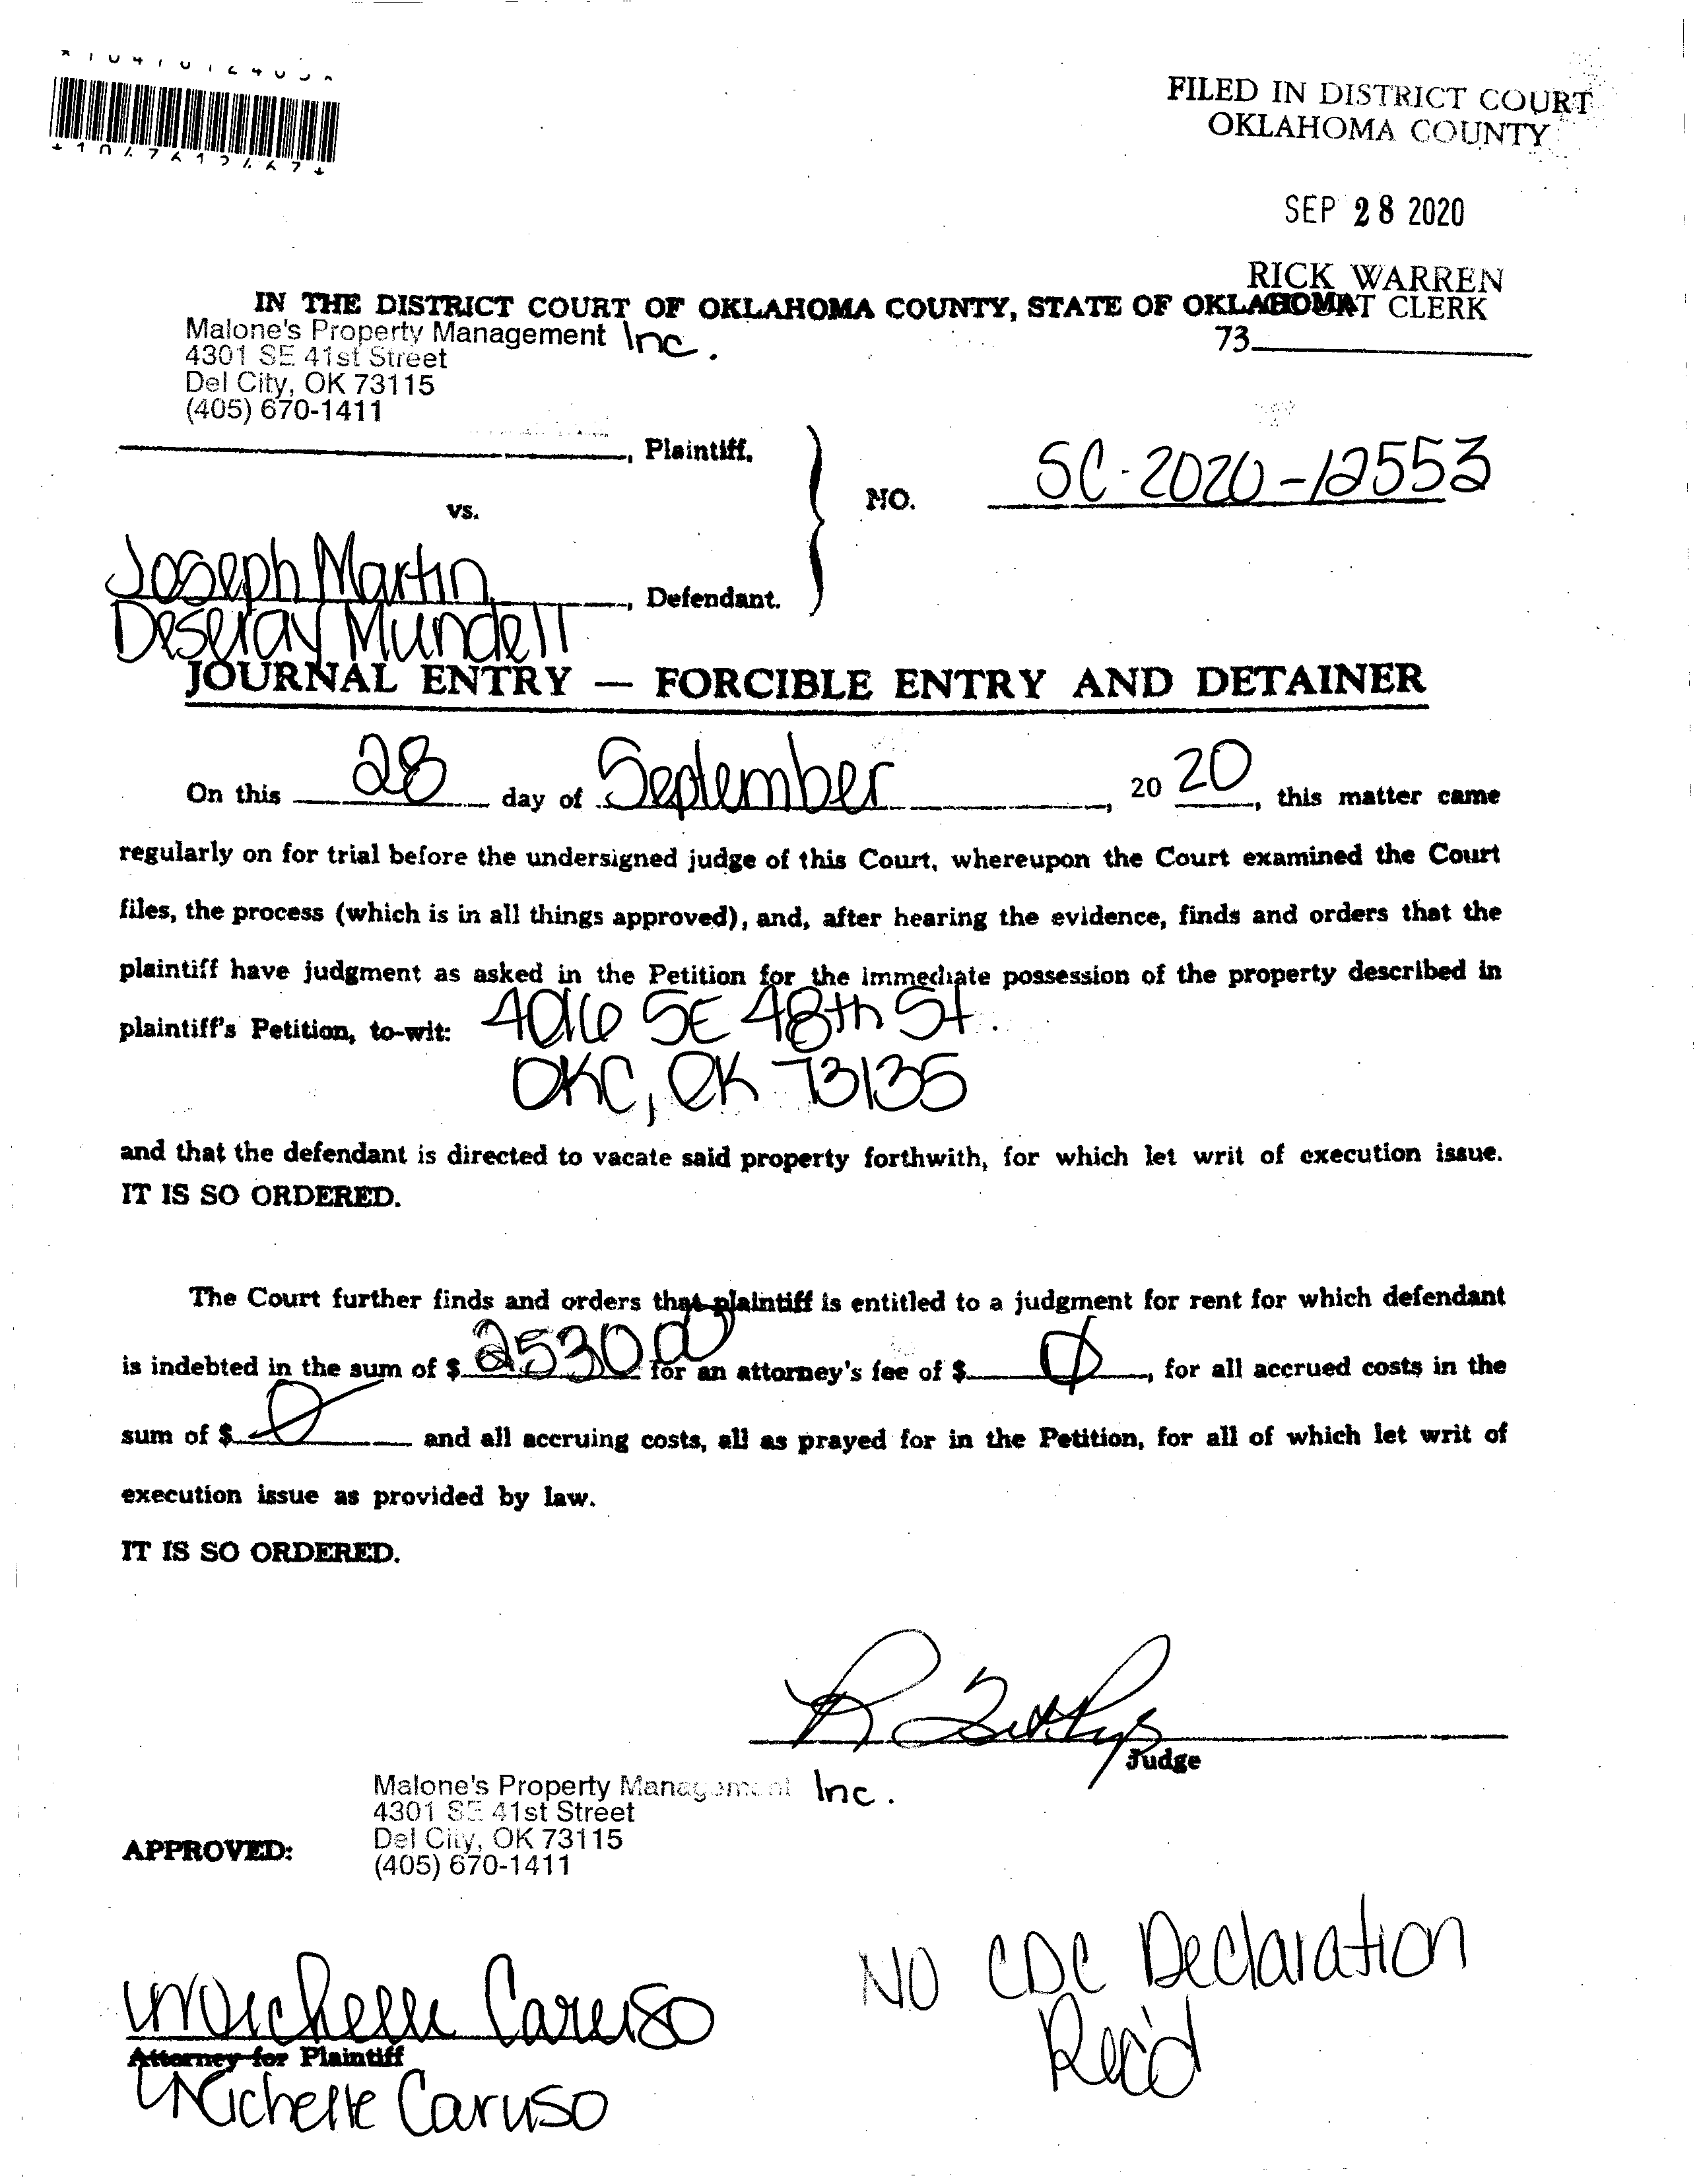 *1047612467*
FILED IN DISTRICT COURT
OKLAHOMA COUNTY
SEP 28 2020
RICK WARREN
COURT CLERK
73
IN THE DISTRICT COURT OF OKLAHOMA COUNTY, STATE OF OKLAHOMA
Malone's Property Management Inc.
4301 SE 41st Street
Del City, OK 73115
(405) 670-1411
, Plaintiff,
vs.
NO. SC-2020-12553
Joseph Martin
, Defendant.
Deseray Mundell
JOURNAL ENTRY — FORCIBLE ENTRY AND DETAINER
On this 28 day of September, 20 20, this matter came
regularly on for trial before the undersigned judge of this Court, whereupon the Court examined the Court
files, the process (which is in all things approved), and, after hearing the evidence, finds and orders that the
plaintiff have judgment as asked in the Petition for the immediate possession of the property described in
plaintiff's Petition, to-wit: 4016 SE 48th St.
OKC, OK 73135
and that the defendant is directed to vacate said property forthwith, for which let writ of execution issue.
IT IS SO ORDERED.
The Court further finds and orders that plaintiff is entitled to a judgment for rent for which defendant
is indebted in the sum of $ 253000 for an attorney's fee of $ 0, for all accrued costs in the
sum of $ 0 and all accruing costs, all as prayed for in the Petition, for all of which let writ of
execution issue as provided by law.
IT IS SO ORDERED.
Judge
Malone's Property Management Inc.
4301 SE 41st Street
Del City, OK 73115
(405) 670-1411
APPROVED:
Michelle Caruso
Attorney for Plaintiff
Michelle Caruso
NO CDC Declaration
Rec'd